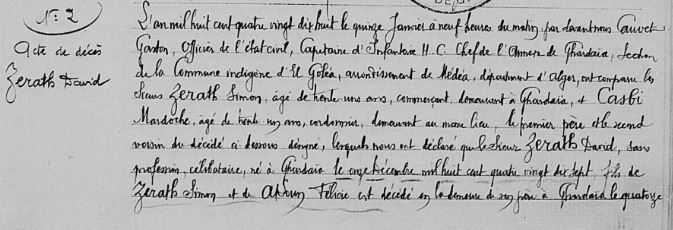 N: 2
Acte de décès
Zerath David
L'an mil huit cent quatre vingt dix huit le quinze Janvier à neuf heures du matin, par devant nous Cauvet
Gaston, Officier de l'état civil, Capitaine d'Infanterie H. C. Chef de l'Annexe de Ghardaia, Section
de la Commune indigène d'El Goléa, arrondissement de Médéa, département d'Alger, ont comparu les
Sieurs Zerath Simon, âgé de trente uns ans, commerçant, demeurant à Ghardaia, et Casbi
Mardoche, âgé de trente un ans, cordonnier, demeurant au même lieu, le premier père et le second
voisin du décédé ci dessous désigné, lesquels nous ont déclaré que le Sieur Zerath David, sans
profession, célibataire, né à Ghardaia le onze Décembre mil huit cent quatre vingt dix sept, fils de
Zerath Simon et de Félicie est décédé en la demeure de son père à Ghardaia le quatorze